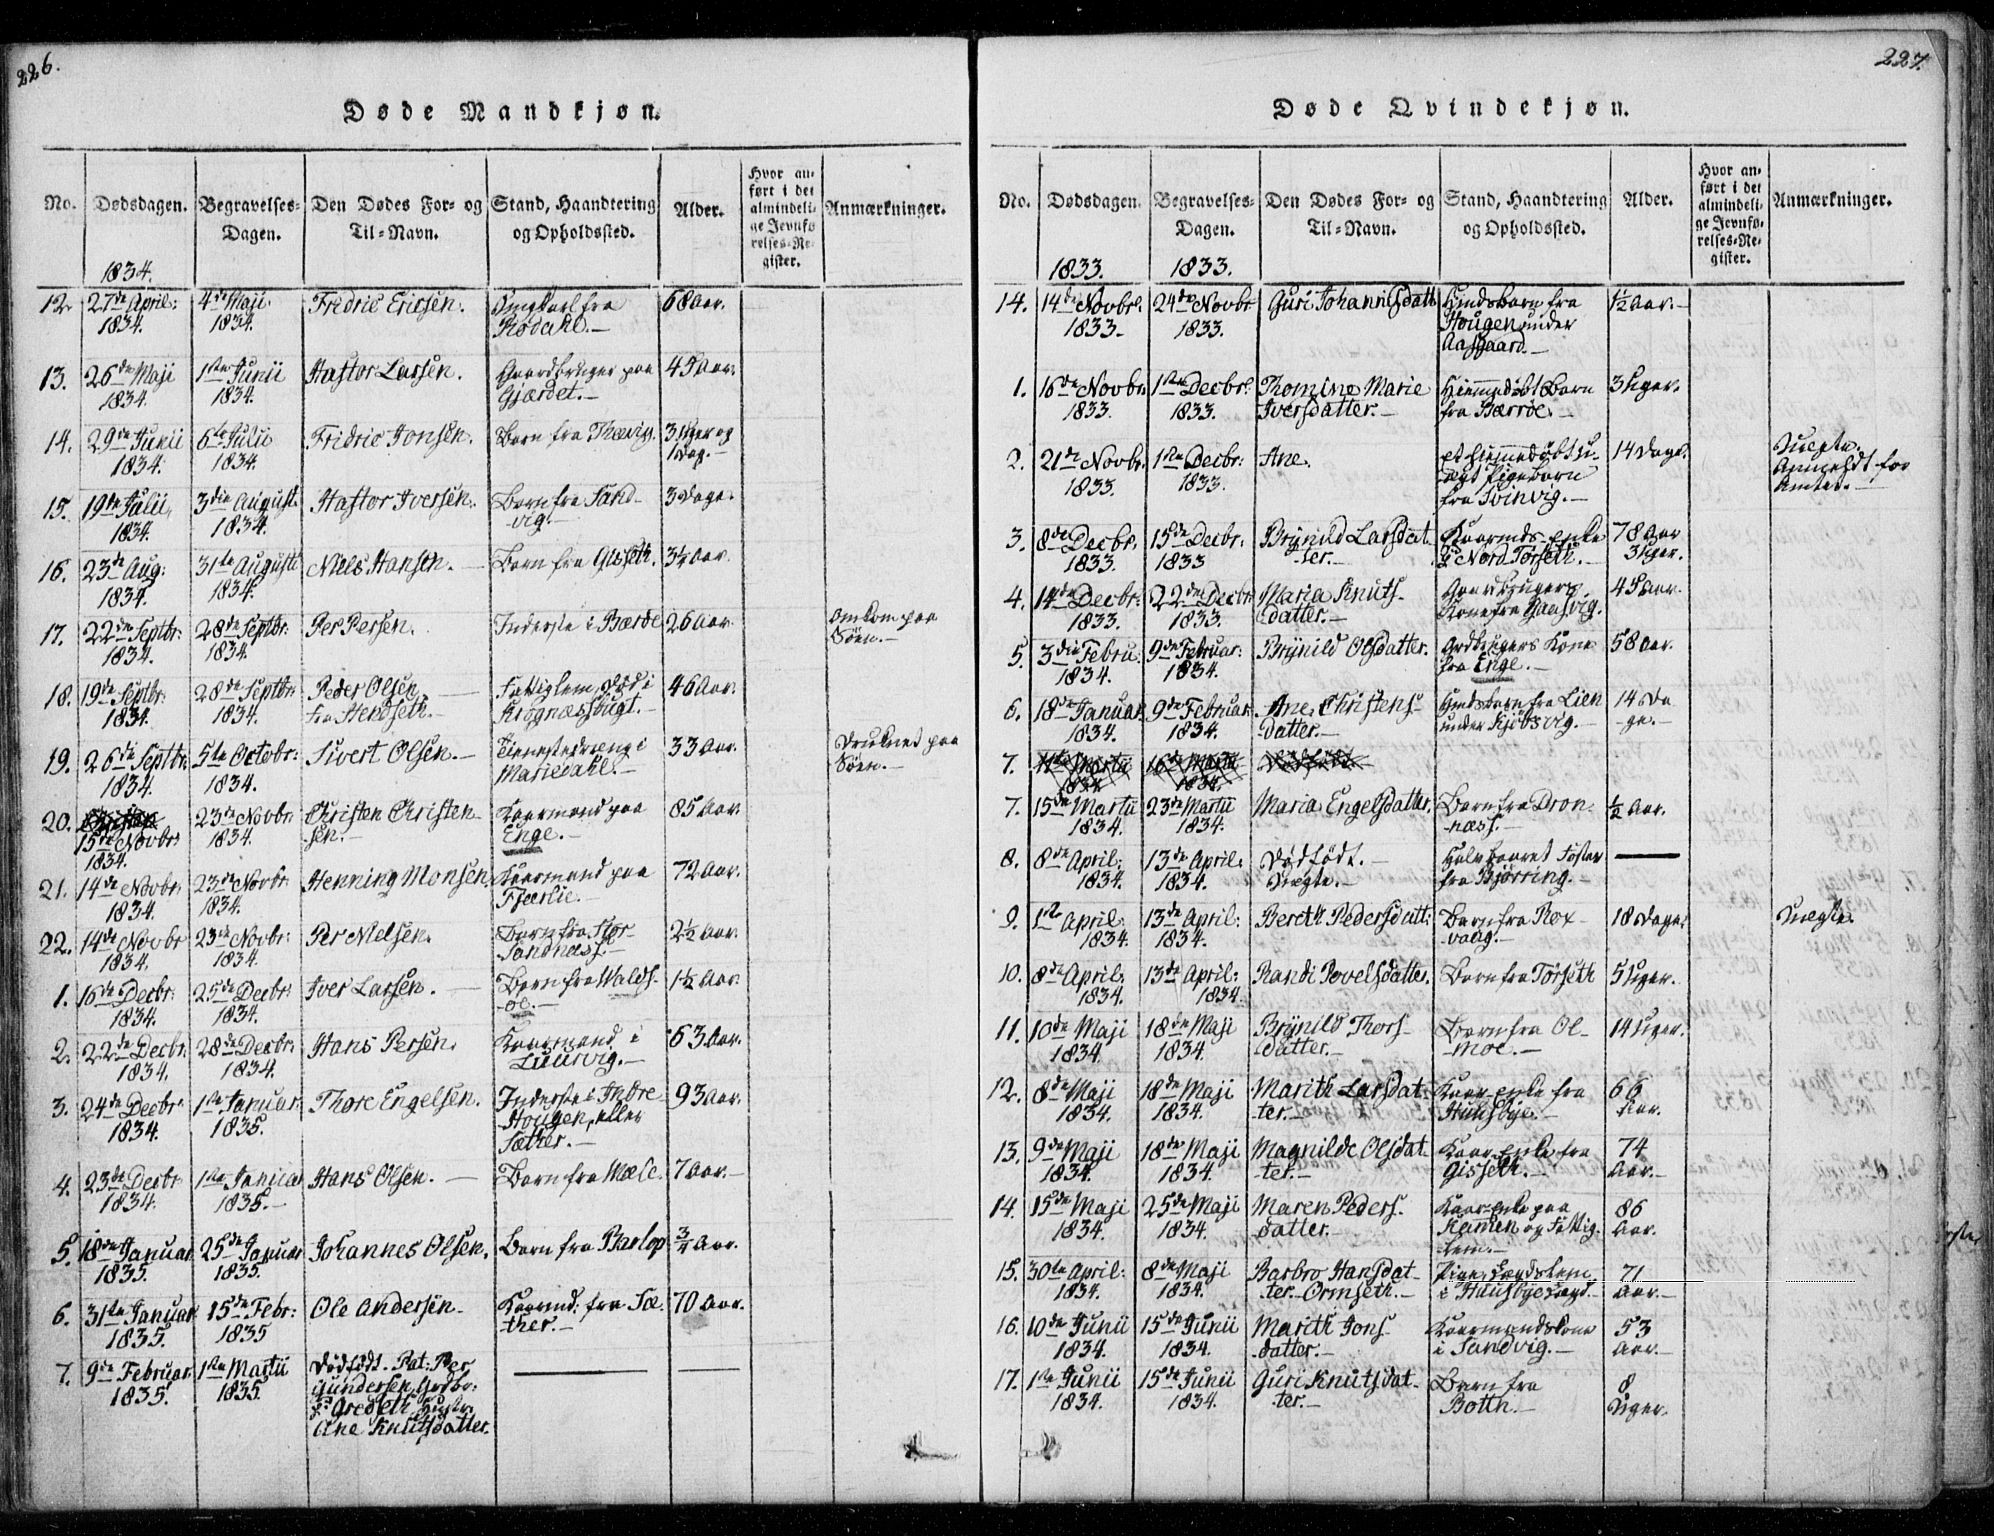 226.
Døde Mandkjøn.
No. Dødsdagen. Begravelses-Dagen. Den Dødes For- og Til-Navn. Stand, Haandtering og Opholdssted. Alder. Hvor anført i det almindelige Jevnførelses-Register. Anmærkninger.
1834.
12. 27de April: 4de Maji Fredric Ericsen. fra 68 Aar.
1834. 1834. Rødahl.
13. 26de Maji 1ste Junii Hastor Larsen. Gaardbruger paa 45 Aar.
1834. 1834. Gjærdet.
14. 29de Junii 6te Julii Fridric Jonsen. Barn fra 3 Uger og
1834. 1834. 1 Dag.
15. 19de Julii 3die Augusti Hastor Iversen. Barn fra Sand- 3 Dage.
1834. 1834. vig.
16. 23de Aug: 31te Augusti Niels Hansen. Barn fra Gisseth. 3¼ Aar.
1834. 1834.
17. 22de Septbr: 28de Septbr: Per Persen. Inderste i 26 Aar. Omkom paa
1834. 1834. Søen.
18. 19de Septbr: 28de Septbr: Peder Olsen Fattiglem, død i 46 Aar.
1834. 1834. fra Hendseth. Krognæssbugt.
19. 26de Septbr: 5te Octobr: Sivert Olsen. Tienestedreng i 33 Aar. Druknet paa
1834. 1834. Mariedahl. Søen.
20. 23de Novbr: Christen Christen- Kaarmand paa 85 Aar.
15de Novbr: 1834. sen. Enge.
1834.
21. 14de Novbr: 23de Novbr: Henning Monsen. Kaarmand paa 72 Aar.
1834. 1834. Fjærlie.
22. 14de Novbr 23de Novbr: Per Nielsen. Barn fra Stor- 2½ Aar.
1834. 1834. Sandnæss.
1. 16de Decbr: 25de Decbr: Iver Larsen. Barn fra Walds- 1½ Aar.
1834. 1834. øe.
2. 22de Decbr: 28de Decbr: Hans Persen. Kaarmand i 63 Aar.
1834. 1834. Luurvig.
3. 24de Decbr: 1ste Januar: Thore Engelsen. Inderste i Indre- 93 Aar.
1834. 1835. Hougen, eller
Sæther.
4. 23de Decbr 1ste Januar Hans Olsen. Barn fra Mæle. 7 Aar.
1834. 1835.
5. 18de Januar 25de Januar Johannes Olsen. Barn fra Barlop ¾ Aar.
1835. 1835.
6. 31te Januar 15de Febr: Ole Andersen Kaarmd: fra Sæ- 70 Aar.
1835. 1835 ther.
7. 9de Februar 1ste Martii Dødfødt. Pat: Per
1835. 1835. Gundersen Grdbr:
Gredseth Hustr:
Ane Knutsdatter.
227.
Døde Qvindekjøn.
No. Dødsdagen. Begravelses-Dagen. Den Dødes For- og Til-Navn. Stand, Haandtering og Opholdssted. Alder. Hvor anført i det almindelige Jevnførelses-Register. Anmærkninger.
1833. 1833.
14. 14de Novbr. 24de Novbr Guri Johannesdatt Huusbarn fra ½ Aar.
1833. 1833. Hougen under
Aasgaard.
1. 16de Novbr. 1ste Decbr. Thomine Marie Hiemmedøbt Barn 3 Uger.
1833. 1833. Iversdatter. fra Bærrøe.
2. 21de Novbr. 1ste Decbr: Ane. et hiemmedøbt u- 14 Dage. Uægte.
1833. 1833. ægt Pigebarn Anmeldt for
fra Svinvig. Amtet.
3. 8de Decbr. 15de Decbr: Brynild Larsdat- Kaarmds enke 78 Aar
1833. 1833 ter. Nord Torseth. 3 Uger.
4. 14de Decbr: 22de Decbr Maria Knuts- Gaardbrugers 45 Aar.
1833. 1833. datter. Kone fra Gaasvig.
5. 3die Febru. 9de Februar: Brynild Olsdatter. Grdbrugers Kone 58 Aar.
1834. 1834. fra Enge.
6. 18de Januar 9de Februar Ane Christens- Huusbarn fra Lien 14 Da-
1834. 1834. datter. under Kjøbsvig. ge.
7. 11te Martii 16de Martii Dødfødt
1834 1834.
7. 15de Martii 23de Martii Maria Engelsdatter. Barn fra Dron- ½ Aar.
1834. 1834. næss.
8. 8de April: 13de April: Dødfødt. Foster
1834. 1834. Uægte. fra Bjørring.
9. 1ste April: 13de April: Bereth Pedersdatt: Barn fra Rox- 18 Dage. Uægte.
1834. 1834. vaag.
10. 8de April: 13de April: Randi Povelsdatter. Barn fra Torseth 5 Uger.
1834. 1834.
11. 10de Maji 18de Maji Brynild Thors- Barn fra Ol- 14 Uger.
1834. 1834. datter. moe.
12. 8de Maji 18de Maji Marith Larsdat- Kaar-enke fra 66
1834. 1834. ter. Huusbye. Aar.
13. 9de Maji 18de Maji Magnilde Olsdat- Kaar-Enke fra 74
1834. 1834. ter. Gisseth. Aar.
14. 15de Maji 25de Maji Maren Peders- Kaar-enke paa 86
1834. 1834. datter. og Fattig- Aar.
lem.
15. 30te April: 8de Maji Barbro Hansdat- Pige, Lægdslem 71
1834. 1834. ter Ormseth. i Huusbye Lægd. Aar.
16. 10de Junii 15de Junii Marith Jons- Kaarmandskone 53
1834. 1834. datter. i Sandvig. Aar.
17. 1ste Junii 15de Junii Guri Knutsdat- Barn fra 8
1834. 1834. ter. Botth. Uger.